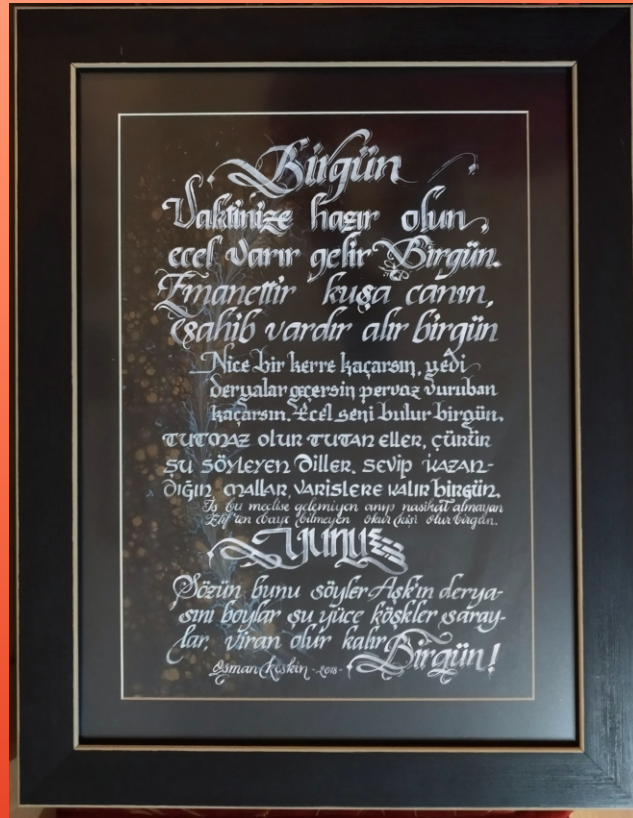 Birgün
Vaktinize hazır olun,
ecel varır gelir Birgün.
Emanettir kuşa canın,
sahib vardır alır birgün
Nice bir kerre kaçarsın, yedi
deryalar geçersin pervaz vuruban
kaçarsın. Ecel seni bulur birgün.
TUTMAZ OLUR TUTAN ELLER, ÇÜRÜR
ŞU SÖYLEYEN DİLLER. SEVİP KAZAN-
DIĞIN MALLAR, VARİSLERE KALIR birgün.
İş bu meclise gelemiyen anıp nasihat almayan
Elif'ten bayı bilmeyen okur kişi olur birgün.
Yunus
Sözün bunu söyler Aşk'ın derya-
sını boylar şu yüce köşkler saray-
lar, viran olur kalır Birgün!
Osman Keskin -2018-